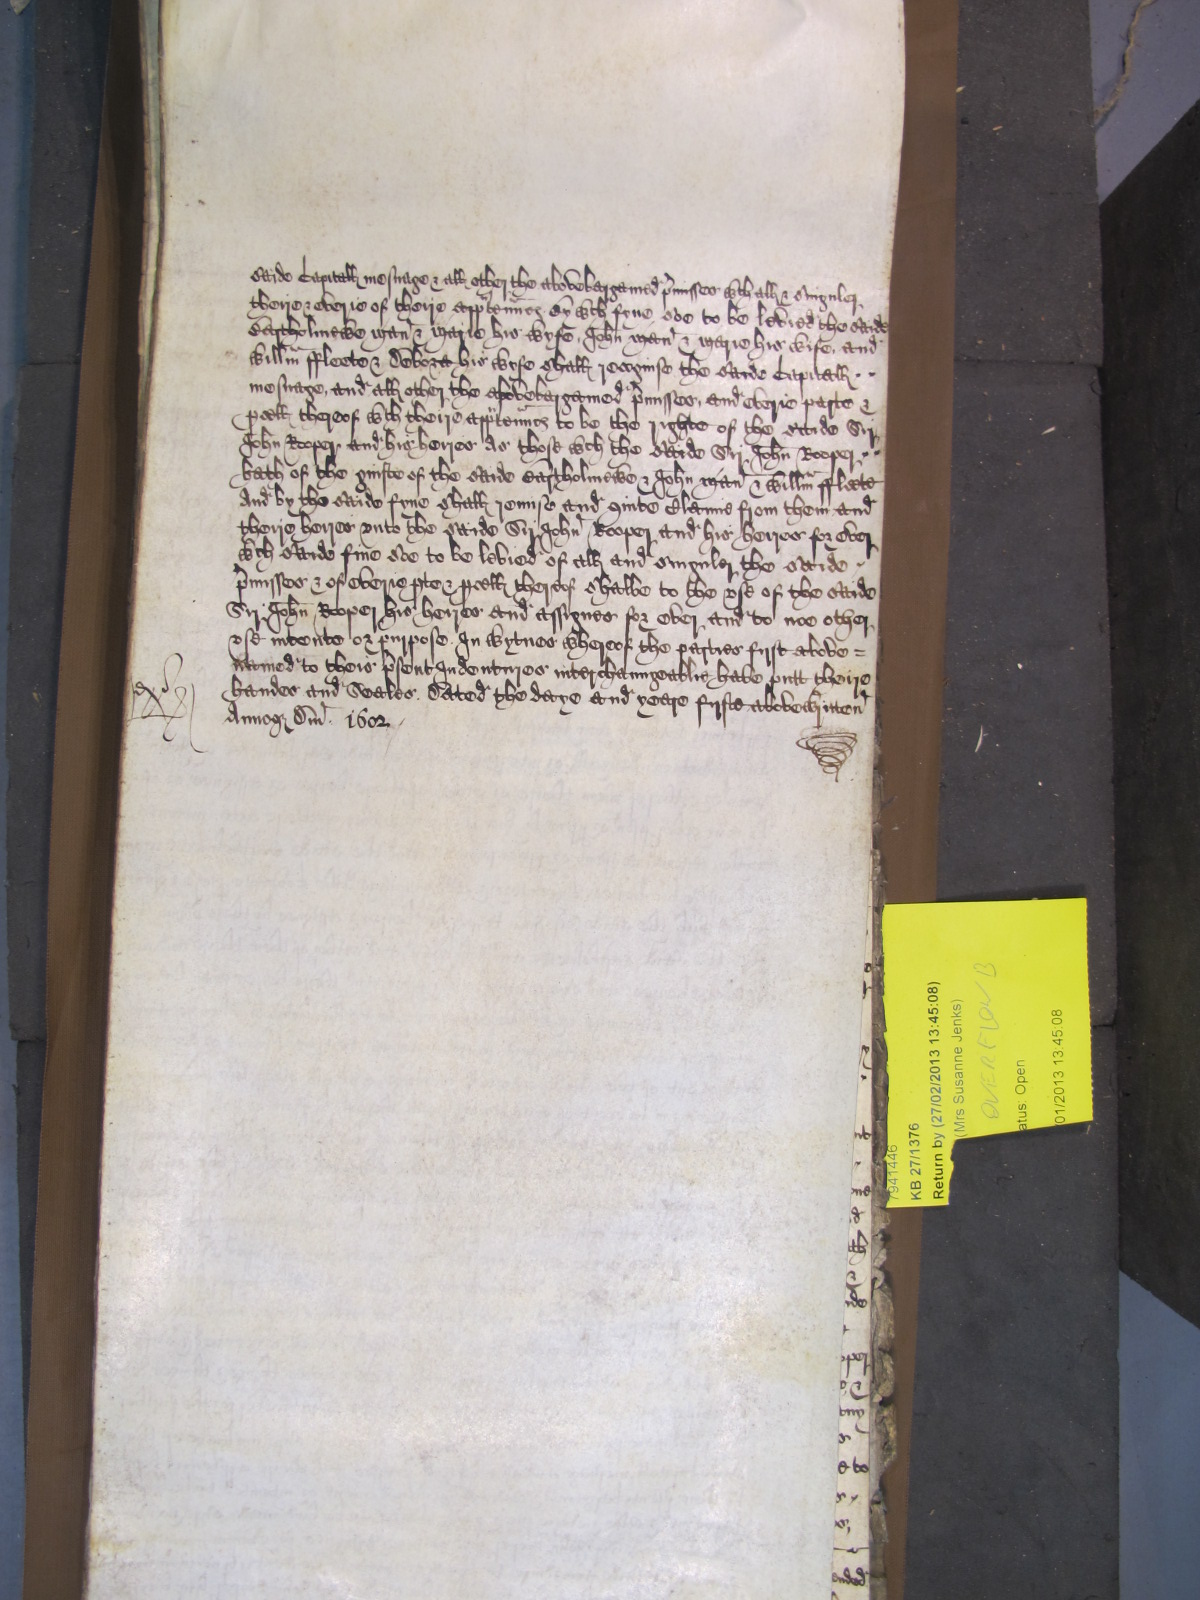 saide Capitall mesuage & all other the abovebargained p'misses wth all & singuler
theire & everie of theire app'ten'ncs. By wch fyne soe to be levied the saide
Bartholmewe Man & Marie his wyfe, John Man & Marie his wife, and
Willm ffleete & Debora his wyfe shall recognise the saide Capitall
mesuage, and all other the abovebargained p'misses, and everie parte &
p'cell thereof wth theire app'ten'ncs to be the righte of the saide Sir
John Rooper and his heires As those wch the saide Sir John Rooper
hath of the guifte of the saide Bartholmewe & John Man & Willm ffleete
And by the saide fyne shall remise and quite Clayme from them and
theire heires unto the saide Sir John Rooper and his heires for ever
wch saide fine soe to be levied of all and singuler the saide
p'misses & of everie p'te & p'cell thereof shalbe to the use of the saide
Sir John Rooper his heires and assignes for ever, and to noe other
use intente or purpose. In wytnes whereof the parties first above =
named to theis p'sent Indentures interchaungeablie have putt theire
handes and Seales. Dated the daye and yeare firste abovewritten
Annoq Dni. 1602
7941446
KB 27/1376
Return by (27/02/2013 13:45:08)
(Mrs Susanne Jenks)
OVERFLOW B
atus: Open
01/2013 13:45:08